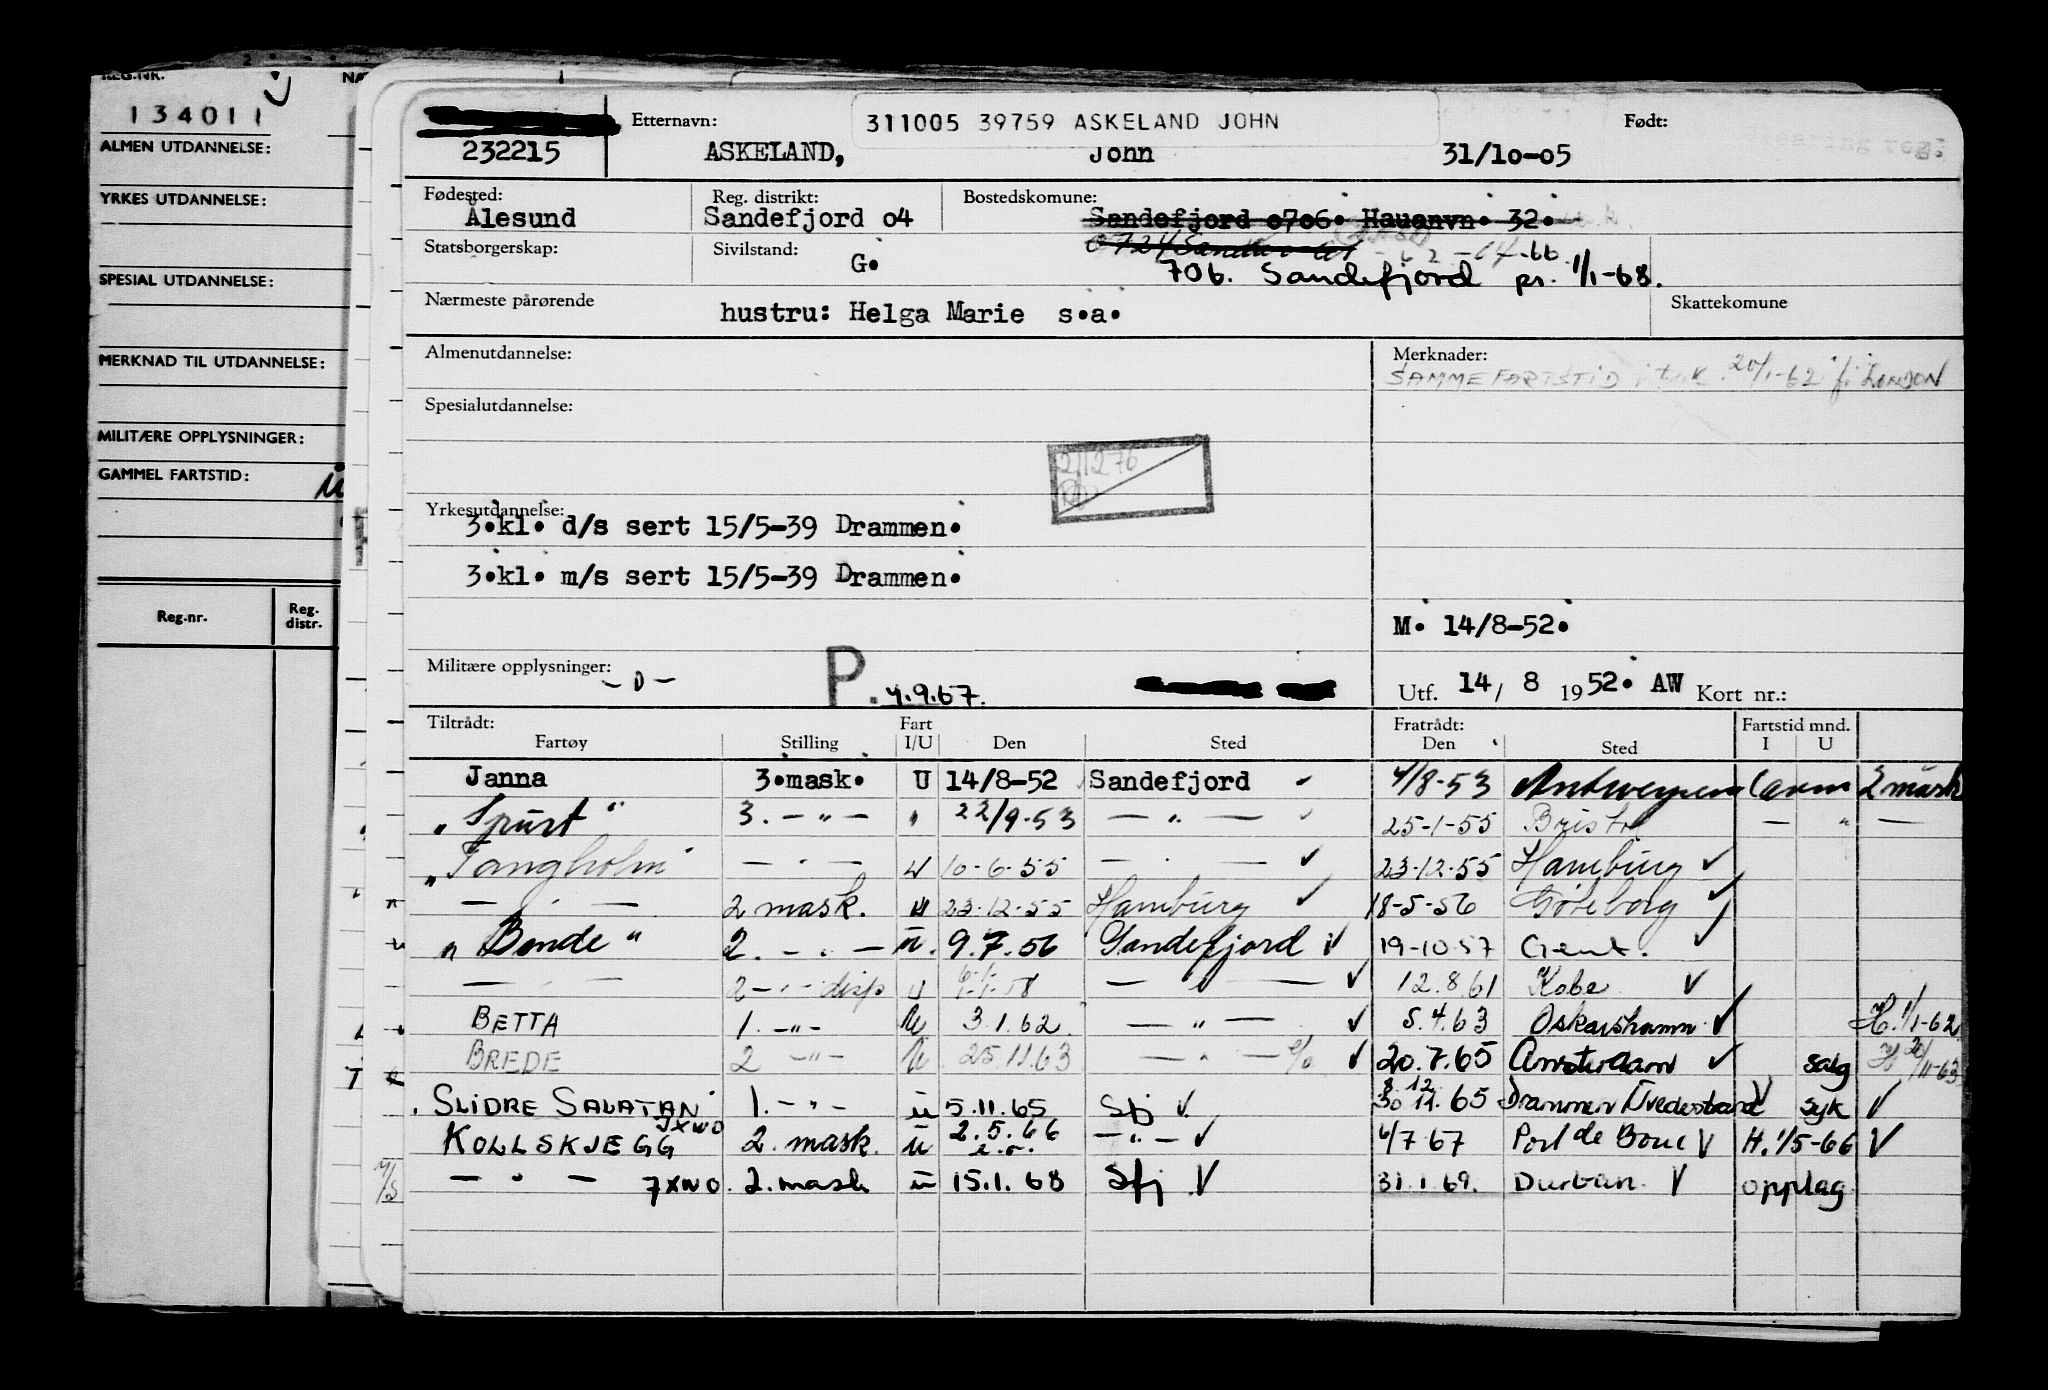 REG.NR.
134011
ALMEN UTDANNELSE:
YRKES UTDANNELSE:
SPESIAL UTDANNELSE:
MERKNAD TIL UTDANNELSE:
MILITÆRE OPPLYSNINGER:
GAMMEL FARTSTID:
Reg.nr. Reg. distr.
Etternavn: 311005 39759 ASKELAND JOHN Født:
232215 ASKELAND, John 31/10-05
Fødested: Reg. distrikt: Bostedskomune:
Ålesund Sandefjord 04 Sandefjord 0706. Hauanvn. 32.
Statsborgerskap: Sivilstand: G.
706. Sandefjord pr. 1/1-68.
Nærmeste pårørende hustru: Helga Marie s.a. Skattekomune
Almenutdannelse: Merknader:
SAMME FARTSTID 20/1-62 f. LONDON
Spesialutdannelse:
Yrkesutdannelse:
3.kl. d/s sert 15/5-39 Drammen.
3.kl. m/s sert 15/5-39 Drammen.
M. 14/8-52.
Militære opplysninger: -D- P. 4.9.67. Utf. 14/ 8 1952. AW Kort nr.:
Tiltrådt: Fart Fratrådt: Fartstid mnd.
Fartøy Stilling I/U Den Sted Den Sted I U
Janna 3.mask. U 14/8-52 Sandefjord 4/8-53 Antwerpen 2 mask
"Spurt" 3. - " - " 22/9-53 - " - 25-1-55 - " -
"Tangholm" - " - u 10-6-55 - " - 23-12-55 Hamburg
- " - 2 mask. u 23-12-55 Hamburg 18-5-56 Göteborg
"Bonde" 2. - " - u. 9.7.56 Sandefjord 19-10-57 Gent.
- " - 2 - " - disp u - " - 12.8.61 Kobe
BETTA 1. - " - u 3.1.62 - " - 5.4.63 Oskarshamn H. 1/1-62
BREDE 2 - " - u 25.11.63 - " - 20.7.65 Amsterdam salg H 20/11-63
SLIDRE SALATAN 1. - " - u 5.11.65 Sfj 65 Drammen Tvedestrand syk
KOLLSKJEGG JXWO 2. mask. u 2.5.66 - " - 4/7 67 Port de Bouc H. 1/5-66
M/S - " - JXWO. 2. mask u 15.1.68 Sfj 31.1.69. Durban opplag